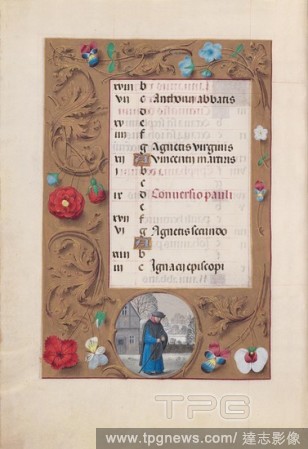 xviii b
vii c Anthonii abbatis
d
xv e
iiii f
g Agnetis virginis
xii A Vincencii martiris
b
c
ix d Conversio pauli
e
xvii f
vi g Agnetis secundo
A
xiiii b
iii c Ignacii episcopi
TPG
www.tpgnews.com/達志影像